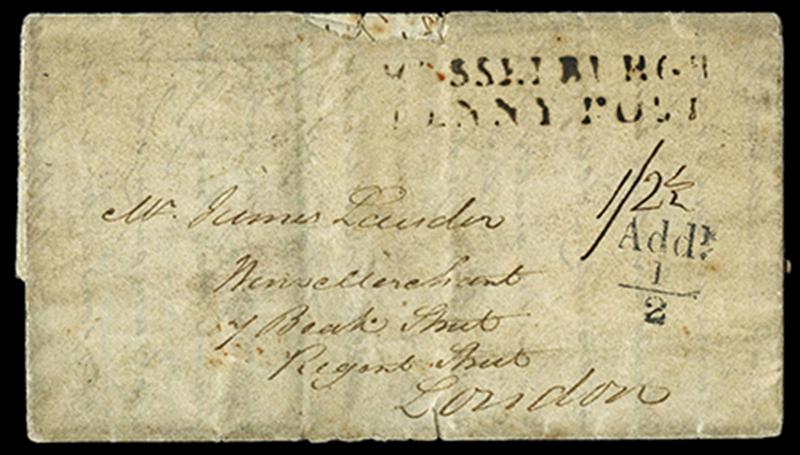 MUSSELBURGH
PENNY POST
1/2½
Mr. James Lauder
Addl.
1/2
Wine Merchant
7 Beak Street
Regent Street
London